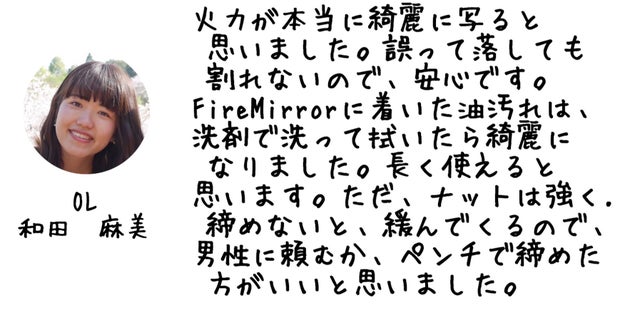 火力が本当に綺麗に写ると
思いました。誤って落しても
割れないので、安心です。
FireMirrorに着いた油汚れは、
洗剤で洗って拭いたら綺麗に
なりました。長く使えると
思います。ただ、ナットは強く.
締めないと、緩んでくるので、
男性に頼むか、ペンチで締めた
方がいいと思いました。
OL
和田 麻美